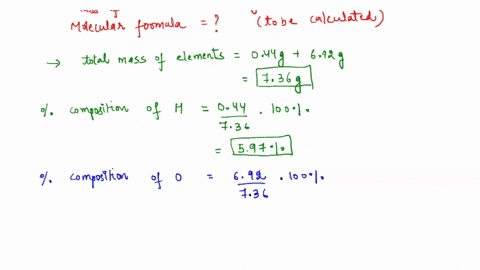 Molecular foomula = ? (to be calculated)
→ total mass of elements = 0.44g + 6.92g
= 7.36g
%. composition of H = 0.44/7.36 . 100%.
= 5.97%.
%. composition of O = 6.92/7.36 . 100%.